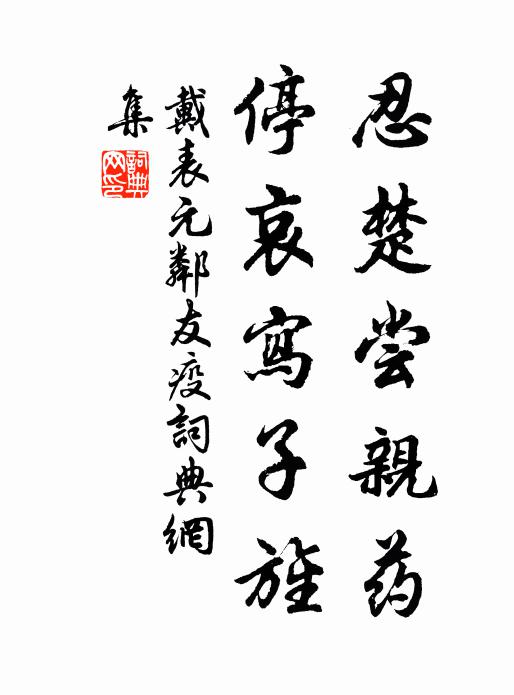 忍楚尝親药
停哀寫子旌
戴表元鄰友疫詞典網
集
詞典
网印